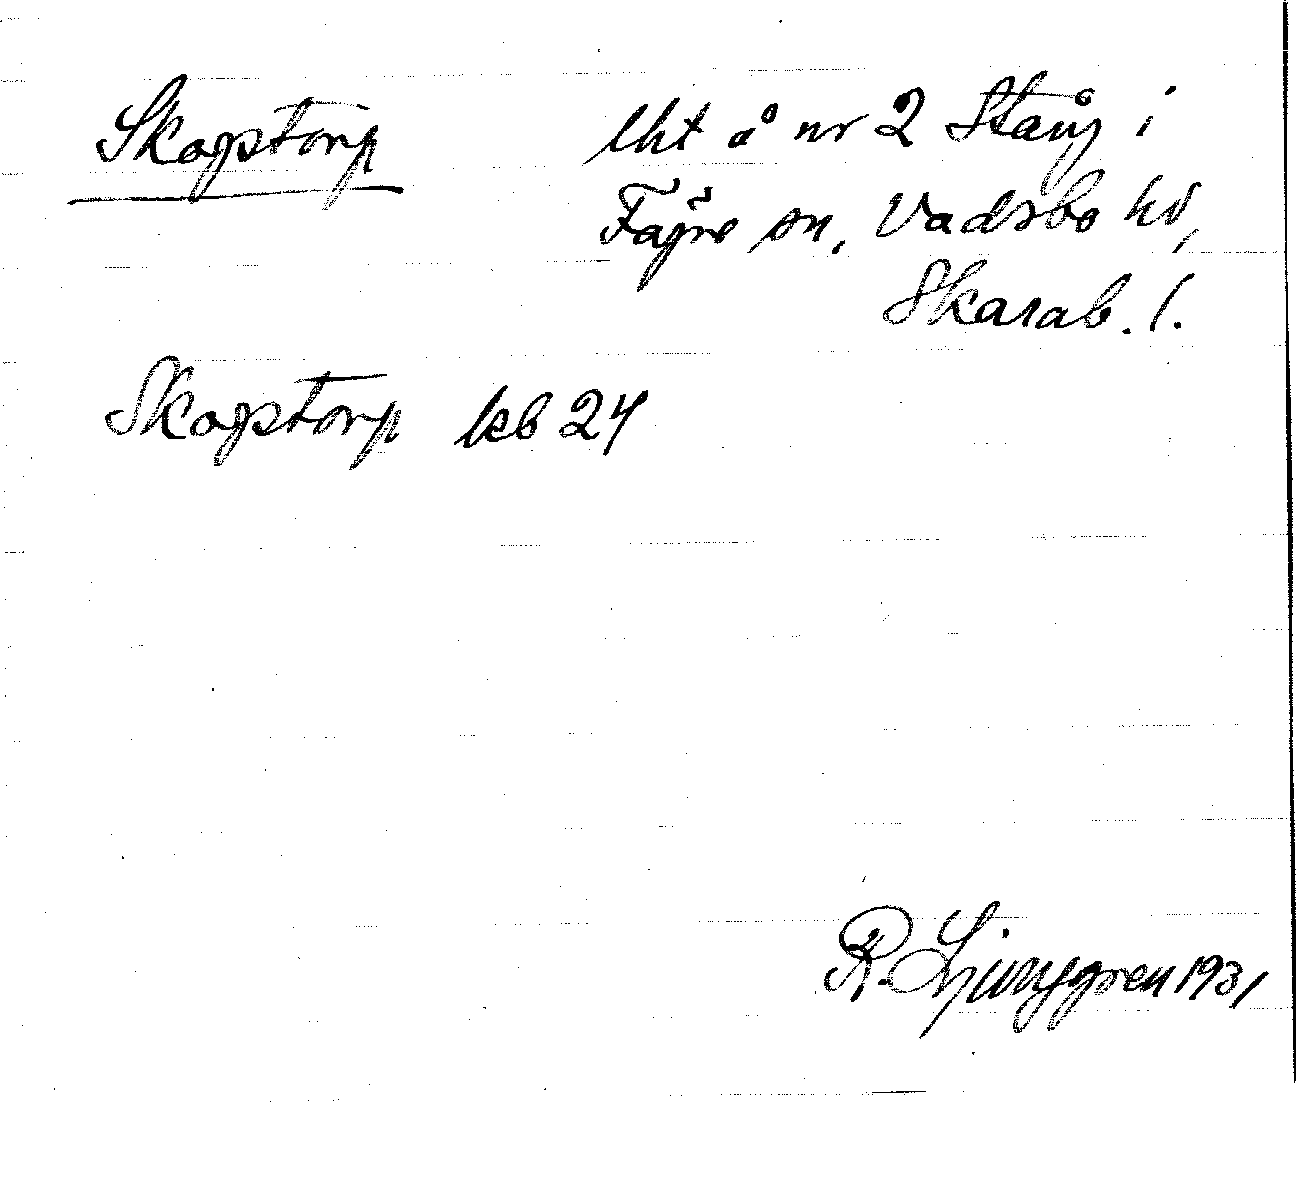 Skogstorp lht å nr 2 Stång i
Fägre sn, Vadsbo hd,
Skarab. l.
Skogstorp kb 24
R. Ljunggren 1931